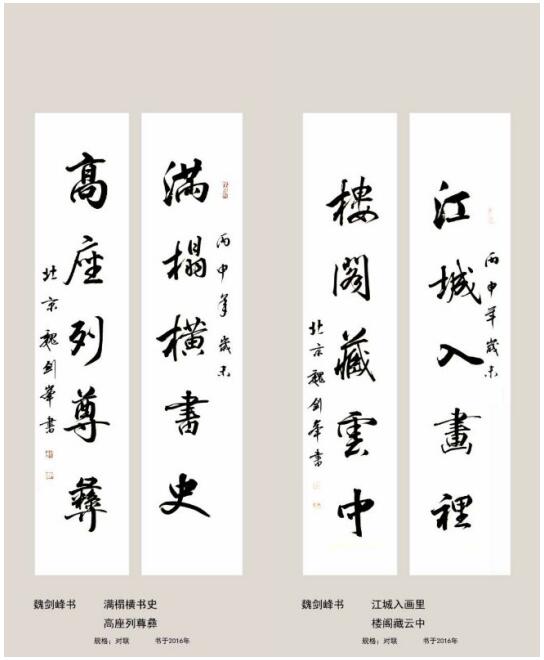 丙申年歲末
滿榻橫書史
髙座列尊彝
北京魏劍峯書
丙申年歲末
江城入畫裡
樓閣藏雲中
北京魏劍峯書
魏剑峰书 满榻横书史
高座列尊彝
规格：对联 书于2016年
魏剑峰书 江城入画里
楼阁藏云中
规格：对联 书于2016年